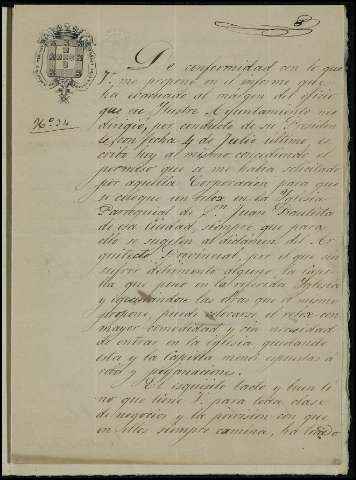 De conformidad con lo que
V. me propone en el informe que
ha evacuado al márgen del oficio
que ese Ilustre Ayuntamiento me
dirigió, por conducto de su Presiden
te, con fecha 4 de Julio último, es
cribo hoy al mismo concediendo el
permiso que se me habia solicitado
por aquella Corporacion para que
se coloque un relox en la Iglesia
Nº 34
Parroquial de Sn Juan Bautista
de esa Ciudad, siempre que para
ello se sugeten al dictámen del Ar
quitecto Provincial, por el que sin
sufrir detrimento alguno la cúpu
la que posee la referida Iglesia
y egecutándose las obras que el mismo
propone, puede colocarse el relox con
mayor comodidad y sin necesidad
de entrar en la Iglesia, quedando
esta y la Capilla menos espuestas a
robo y profanaciones.
El esquisito tacto y buen ti
no que tiene V. para toda clase
de negocios y la prevision con que
en ellos siempre camina, ha